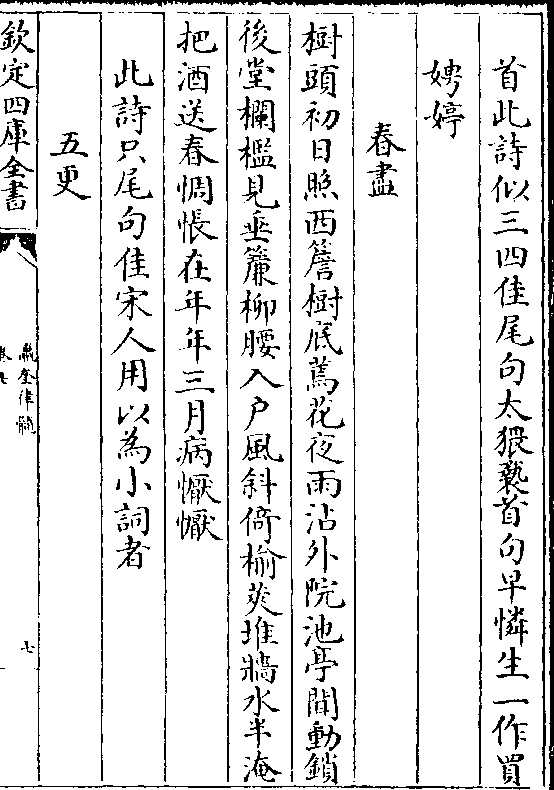 首此詩似三四佳尾句太猥褻首句早憐生一作買
娉婷
春盡
樹頭初日照西簷樹底蔫花夜雨沾外院池亭聞動鎖
後堂欄檻見垂簾柳腰入戶風斜倚榆莢堆牆水半淹
把酒送春惆悵在年年三月病懨懨
此詩只尾句佳宋人用以為小詞者
五更
欽定四庫全書
瀛奎律髓
卷七
七